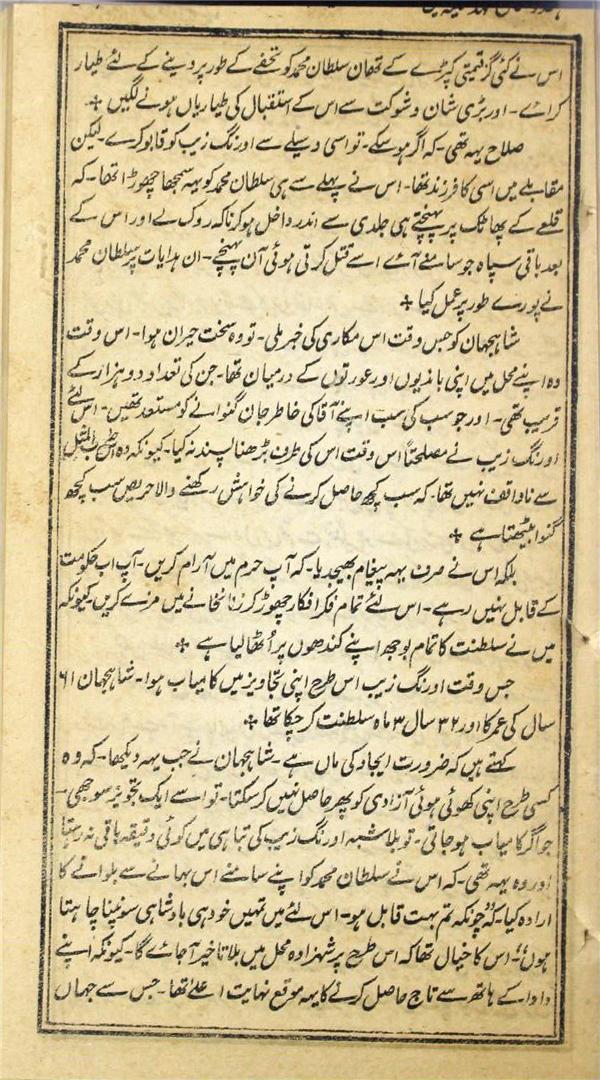 اس نے کئی گز قیمتی کپڑے کے تھان سلطان محمد کو تحفے کے طور پر دینے کے لئے طیار
کرائے۔ اور بڑی شان و شوکت سے اس کے استقبال کی طیاریاں ہونے لگیں ÷
صلاح یہہ تھی۔ کہ اگر ہو سکے۔ تو اسی وسیلے سے اورنگ زیب کو قابو کرے۔ لیکن
مقابلے میں اسی کا فرزند تھا۔ اس نے پہلے سے ہی سلطان محمد کو یہہ سمجھا چھوڑا تھا۔ کہ
قلعے کے پھاٹک پر پہنچتے ہی جلدی سے اندر داخل ہو کر ناکہ روک لے اور اس کے
بعد باقی سپاہ جو سامنے آئے اسے قتل کرتی ہوئی آن پہنچے۔ ان ہدایات پر سلطان محمد
نے پورے طور پر عمل کیا ÷
شاہجہان کو جس وقت اس مکاری کی خبر ملی۔ تو وہ سخت حیران ہوا۔ اس وقت
وہ اپنے محل میں اپنی باندیوں اور عورتوں کے درمیان تھا۔ جن کی تعداد دو ہزار کے
قریب تھی۔ اور جو سب کی سب اپنے آقا کی خاطر جان گنوانے کو مستعد تھیں۔ اس لئے
اورنگ زیب نے مصلحتاً اس وقت اس کی طرف بڑھنا پسند نہ کیا۔ کیونکہ وہ اس ضرب المثل
سے ناواقف نہیں تھا۔ کہ سب کچھ حاصل کرنے کی خواہش رکھنے والا حریص سب کچھ
گنوا بیٹھتا ہے ÷
بلکہ اس نے صرف یہہ پیغام بھیجدیا۔ کہ آپ حرم میں آرام کریں۔ آپ اب حکومت
کے قابل نہیں رہے۔ اس لئے تمام فکر افکار چھوڑ کر زنانخانے میں مزے کریں۔ کیونکہ
میں نے سلطنت کا تمام بوجھ اپنے کندھوں پر اُٹھا لیا ہے ÷
جس وقت اورنگ زیب اس طرح اپنی تجاویز میں کامیاب ہوا۔ شاہجہان ۶۱
سال کی عمر کا اور ۳۲ سال ۳ ماہ سلطنت کر چکا تھا ÷
کہتے ہیں کہ ضرورت ایجاد کی ماں ہے۔ شاہجہان نے جب یہہ دیکھا۔ کہ وہ
کسی طرح اپنی کھوئی ہوئی آزادی کو پھر حاصل نہیں کر سکتا۔ تو اسے ایک تجویز سوجھی۔
جو اگر کامیاب ہو جاتی۔ تو بلاشبہ اورنگ زیب کی تباہی میں کوئی دقیقہ باقی نہ رہتا
اور وہ یہہ تھی۔ کہ اس نے سلطان محمد کو اپنے سامنے اس بہانے سے بلوانے کا
ارادہ کیا۔ کہ "چونکہ تم بہت قابل ہو۔ اس لئے میں تمہیں خود ہی بادشاہی سونپنا چاہتا
ہوں"۔ اس کا خیال تھا کہ اس طرح پر شہزادہ محل میں بلا تاخیر آ جائے گا۔ کیونکہ اپنے
دادا کے ہاتھ سے تاج حاصل کرنے کا یہہ موقع نہایت اعلےٰ تھا۔ جس سے جہاں